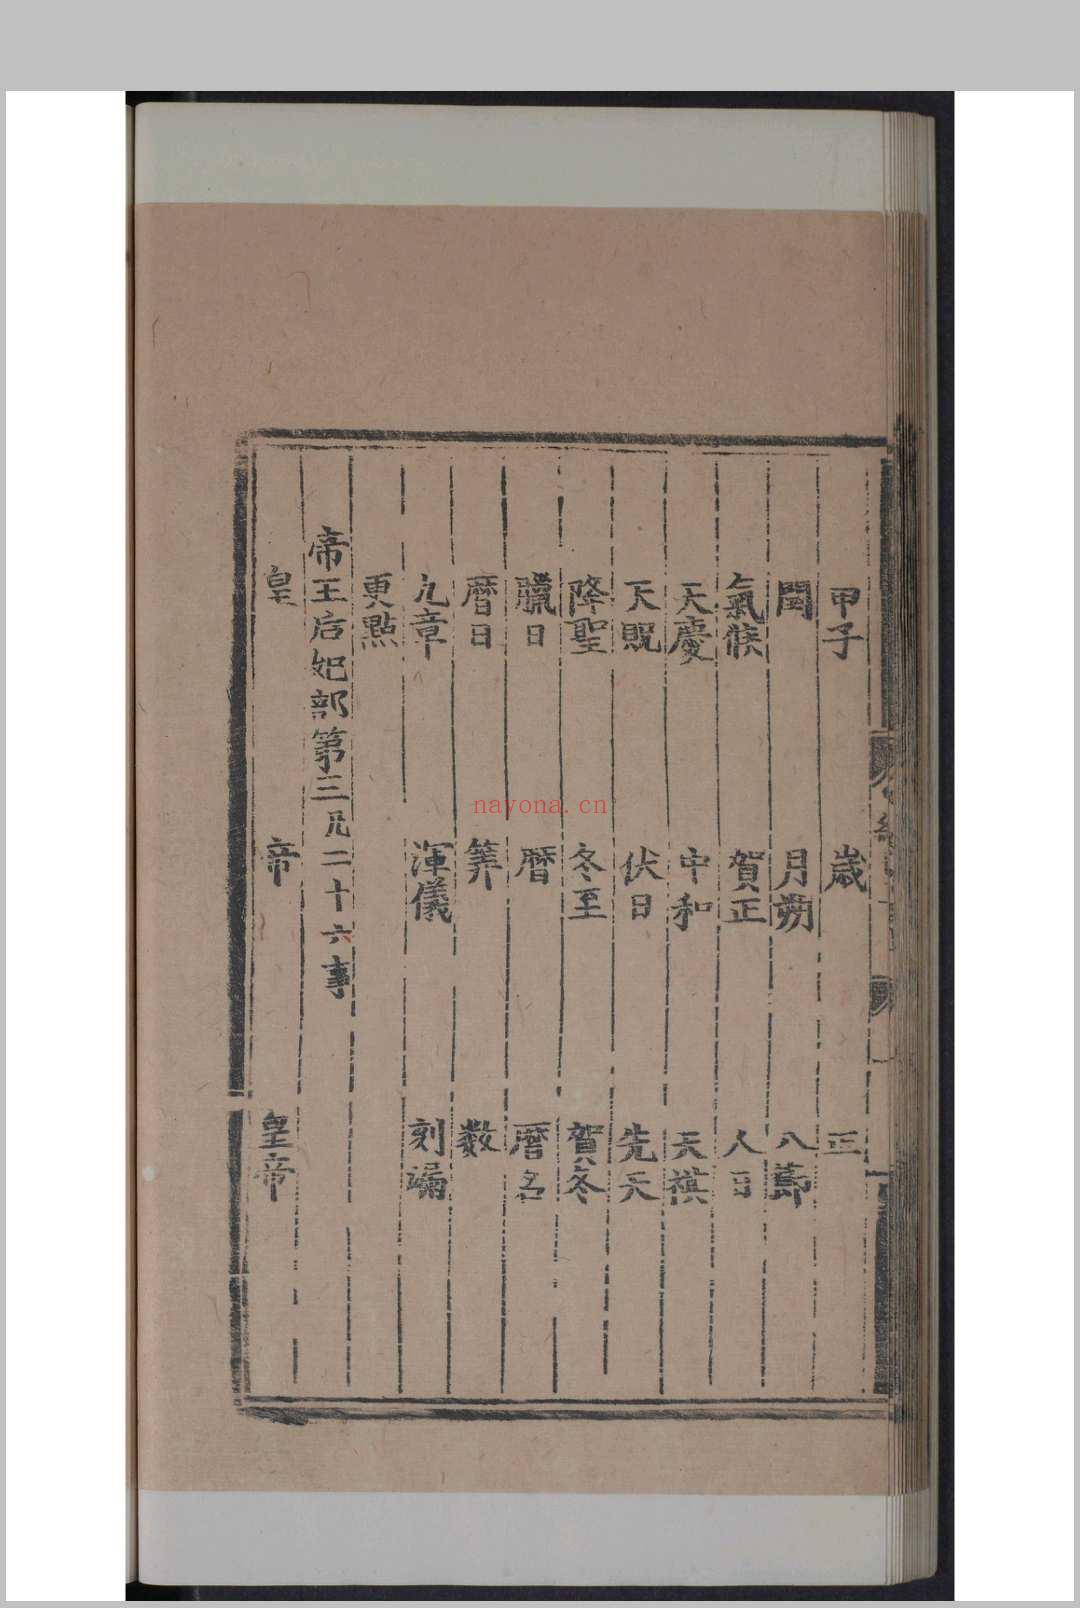 甲子 歲 正
閏 月朔 八節
氣候 賀正 人日
天慶 中和 天祺
天貺 伏日 先天
降聖 冬至 賀冬
臘日 曆 曆名
曆日 筭 數
九章 渾儀 刻漏
更點
帝王后妃部第三凡二十六事
皇 帝 皇帝
nayona.cn